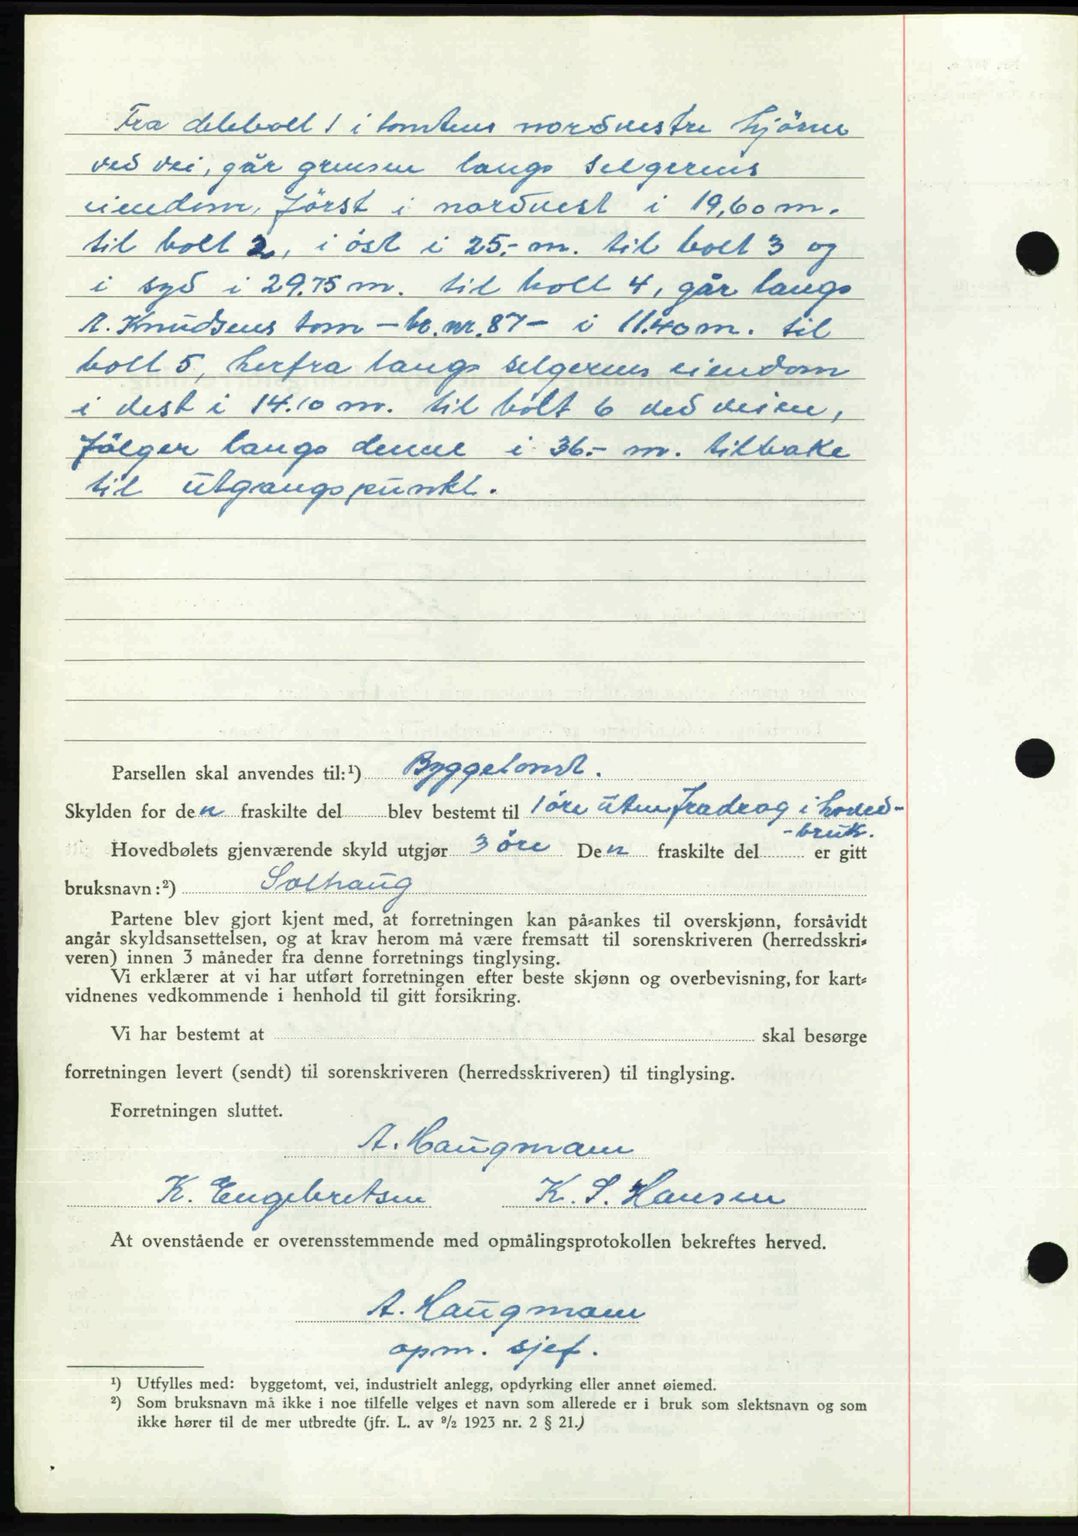 Fra delebolt 1 i tomtens nordvestre hjörne
ved vei, går grensen langs selgerens
eiendom, först i nordvest i 19,60 m.
til bolt 2, i öst i 25.- m. til bolt 3 og
i syd i 29.75 m. til bolt 4, går langs
A. Knudsens tom - br. nr. 87 - i 11.40 m. til
bolt 5, herfra langs selgerens eiendom
i vest i 14.10 m. til bolt 6 ved veien,
fölger langs denne i 36.- m. tilbake
til utgangspunkt.
Parsellen skal anvendes til:¹) Byggetomt.
Skylden for den fraskilte del blev bestemt til 1 öre uten fradrag i hoved-
-bruk.
Hovedbølets gjenværende skyld utgjør 3 öre Den fraskilte del er gitt
bruksnavn:²) Solhaug
Partene blev gjort kjent med, at forretningen kan på-ankes til overskjønn, forsåvidt
angår skyldsansettelsen, og at krav herom må være fremsatt til sorenskriveren (herredsskri-
veren) innen 3 måneder fra denne forretnings tinglysing.
Vi erklærer at vi har utført forretningen efter beste skjønn og overbevisning, for kart-
vidnenes vedkommende i henhold til gitt forsikring.
Vi har bestemt at skal besørge
forretningen levert (sendt) til sorenskriveren (herredsskriveren) til tinglysing.
Forretningen sluttet.
A. Haugmann
K. Engebretsen K. S. Hansen
At ovenstående er overensstemmende med opmålingsprotokollen bekreftes herved.
A. Haugmann
opm. sjef.
¹) Utfylles med: byggetomt, vei, industrielt anlegg, opdyrking eller annet øiemed.
²) Som bruksnavn må ikke i noe tilfelle velges et navn som allerede er i bruk som slektsnavn og som
ikke hører til de mer utbredte (jfr. L. av ⁹/₂ 1923 nr. 2 § 21.)